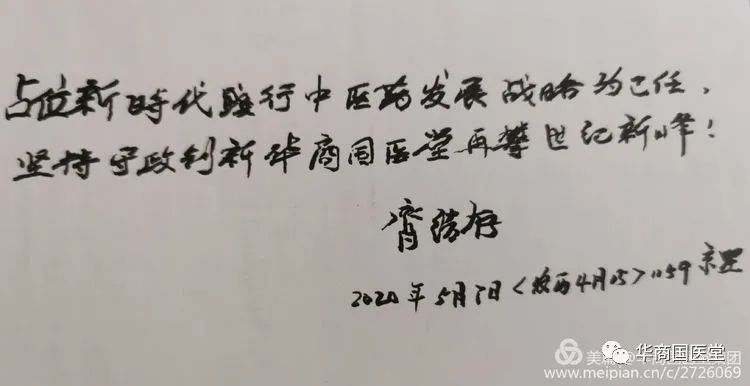 占位新時代履行中医药发展战略为己任,
坚持守政创新华商国医堂再攀世纪新峰!
2020年5月7日<农历4月15>1059京
华商国医堂
www.meipian.cn/c/2726069